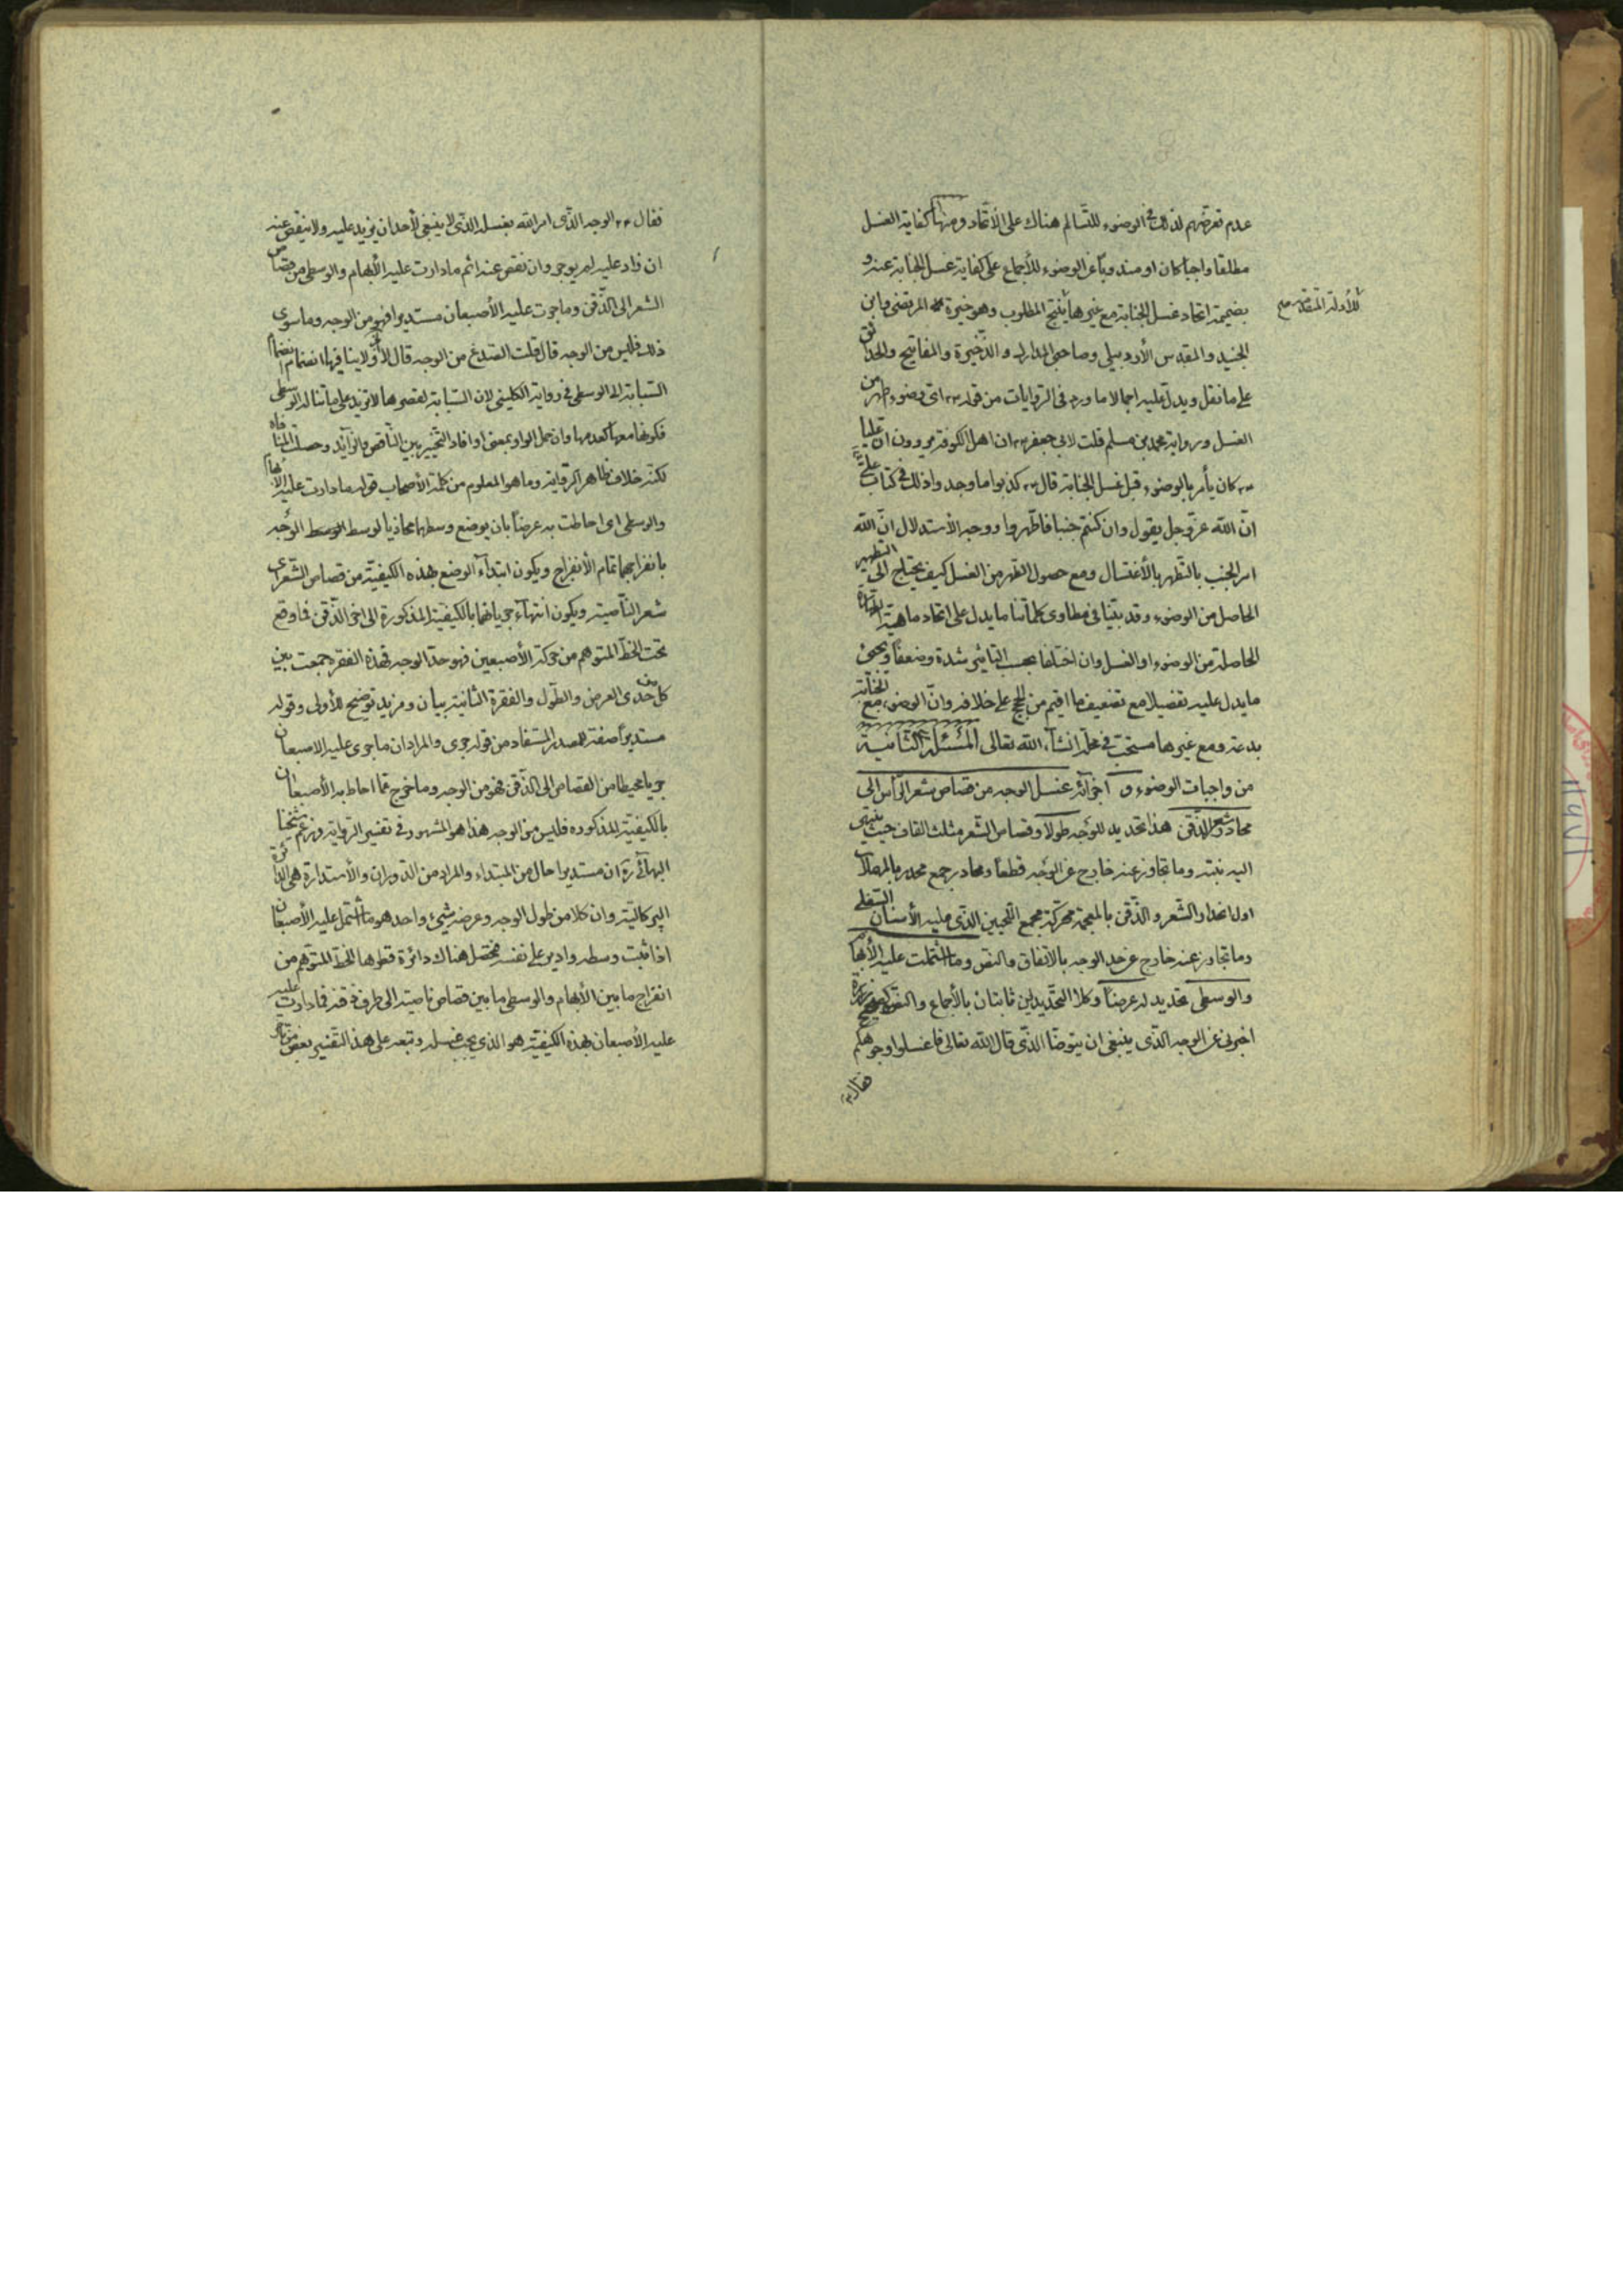 عدم تعرضهم لذلك في الوضوء للتسالم هناك على الاتحاد ومنها كفاية الغسل
مطلقا واجبا كان او مندوبا عن الوضوء للأجماع على كفاية غسل الجنابة عنه و
بضميمة اتحاد غسل الجنابة مع غيرها ينتج المطلوب وهو خيرة المرتضى وابن
للأدلة المتقدمة صح
الجنيد والمقدس الأردبيلي وصاحبي المدارك والذخيرة والمفاتيح والحدائق
على ما نقل ويدل عليه اجمالا ما ورد في الروايات من قوله ع اي وضوء اطهر من
الغسل ورواية محمد بن مسلم قلت لابي جعفر ع ان اهل الكوفة يروون ان عليا
ع كان يأمر بالوضوء قبل غسل الجنابة قال ع كذبوا ما وجدوا ذلك في كتاب علي
ان الله عز وجل يقول وان كنتم جنبا فاطهروا ووجه الأستدلال ان الله
امر الجنب بالتطهر بالأغتسال ومع حصول الطهر من الغسل كيف يحتاج الى التطهير
الحاصل من الوضوء وقد بينا في مطاوي كلماتنا ما يدل على اتحاد ماهية الطهارة
الحاصلة من الوضوء او الغسل وان اختلفا بحسب التاثير شدة وضعفا ويجئ
ما يدل عليه تفصيلا مع تضعيف ما اقيم من الحجج على خلافه وان الوضوء مع الجنابة
بدعة ومع غيرها مستحب في محله انشاء الله تعالى المسئلة الثانية
من واجبات الوضوء و اجزائه غسل الوجه من قصاص شعر الرأس الى
محادر شعر الذقن هذا تحديد للوجه طولا وقصاص الشعر مثلث القاف حيث ينتهي
اليه نبته وما تجاوز عنه خارج عن الوجه قطعا ومحادر جمع محدر بالمهملات
اول انحدار الشعر والذقن بالمعجمة محركة مجمع اللحيين الذي عليه الأسنان السفلى
وما تجاوز عنه خارج عن حد الوجه بالاتفاق والنص وما اشتملت عليه الأبهام
والوسطى تحديد له عرضا وكلا التحديدين ثابتان بالأجماع والنص كصحيح زرارة
اخبرني عن الوجه الذي ينبغي ان يتوضا الذي قال الله تعالى فاغسلوا وجوهكم
فقال ع
فقال ع الوجه الذي امر الله بغسله الذي لا ينبغي لأحد ان يزيد عليه ولا ينقص عنه
ان زاد عليه لم يوجر وان نقص عنه اثم ما دارت عليه الأبهام والوسطى من قصاص
الشعر الى الذقن وما جرت عليه الأصبعان مستديرا فهو من الوجه وما سوى
ذلك فليس من الوجه قال قلت الصدغ من الوجه قال لا ولا ينافيها انضمام
السبابة الى الوسطى في رواية الكليني لان السبابة لقصرها لا تزيد على ما تناله الوسطى
فكونها معها كعدمها وان حمل الواو بمعنى او افاد التخيير بين الناقص والزائد وحصلت المنافاة
لكنه خلاف ظاهر الرواية وما هو المعلوم من كلمة الأصحاب قوله ما دارت عليه الأبهام
والوسطى اي احاطت به عرضا بان يوضع وسطهما محاذيا لوسط الوسط الوجه
بانفراجهما تمام الأنفراج ويكون ابتداء الوضع بهذه الكيفية من قصاص الشعر اي
شعر الناصية ويكون انتهاء جريانهما بالكيفية المذكورة الى اخر الذقن فما وقع
تحت الخط المتوهم من حركة الأصبعين فهو حد الوجه فهذه الفقرة جمعت بين
كل من حدي العرض والطول والفقرة الثانية بيان ومزيد توضيح للأولى وقوله
مستديرا صفة للمصدر المستفاد من قوله جرى والمراد ان ما جرى عليه الاصبعان
جريا محيطا من القصاص الى الذقن فهو من الوجه وما خرج عما احاط به الأصبعان
بالكيفية المذكوره فليس من الوجه هذا هو المشهور في تفسير الرواية وزعم شيخنا
البهائي ره ان مستديرا حال من المبتداء والمراد من الدوران والأستدارة هي الدائرة
البركالية وان كلا من طول الوجه وعرضه شيء واحد هو ما اشتمل عليه الأصبعان
اذا ثبت وسطه وادير على نفسه فيحصل هناك دائرة قطرها الخط المتوهم من
انفراج ما بين الأبهام والوسطى ما بين قصاص ناصيته الى طرف ذقنه فما دارت عليه
عليه الأصبعان بهذه الكيفية هو الذي يجب غسله وتبعه على هذا التفسير بعض من تأخر